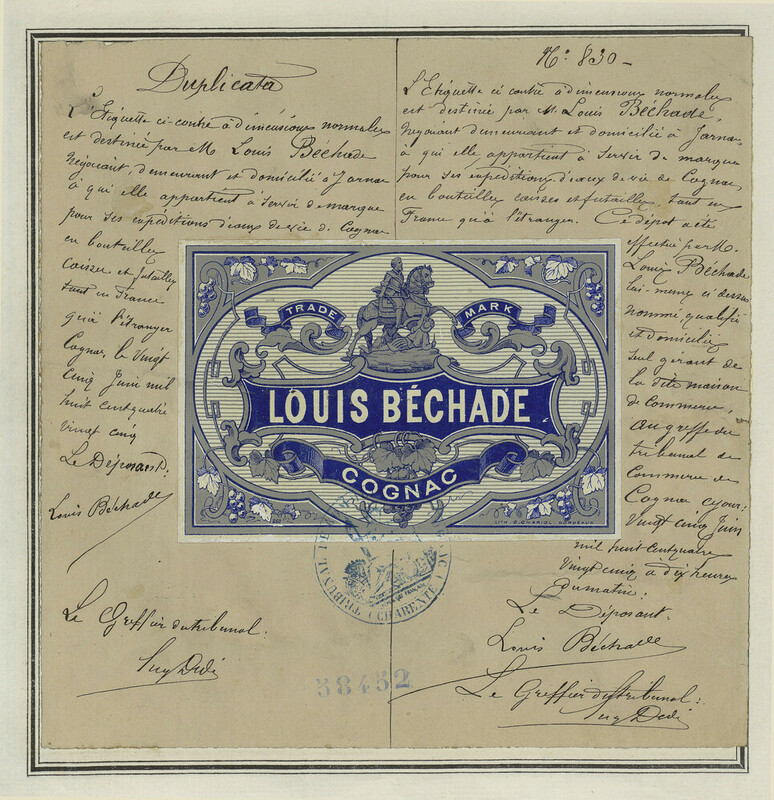 Duplicata
L'Etiquette ci-contre à dimensions normales
est destinée par M Louis Béchade
négociant, demeurant et domicilié à Jarnac
à qui elle appartient à servir de marque
pour ses expéditions d'eaux de vie de Cognac
en bouteilles
caisses et futailles
tant en France
qu'à l'étranger
Cognac, le vingt
cinq Juin mil
huit cent quatre
vingt cinq
Le Déposant:
Louis Béchade
Le Greffier du tribunal:
N° 830 -
L'Etiquette ci contre à dimensions normales
est destinée par M. Louis Béchade,
négociant demeurant et domicilié à Jarnac
à qui elle appartient à servir de marque
pour ses expéditions d'eaux de vie de Cognac,
en bouteilles caisses et futailles, tant en
France qu'à l'étranger. Ce dépot a été
effectué par M.
Louis Béchade
lui-meme ci dessus
nommé, qualifié
et domicilié
seul gérant de
la dite maison
de Commerce,
au greffe du
tribunal de
Commerce de
Cognac ce jour:
Vingt cinq Juin
mil huit cent quatre
vingt cinq à dix heures
du matin:
Le Déposant.
Louis Béchade
Le Greffier du tribunal:
TRADE MARK
LOUIS BÉCHADE
COGNAC
LITH. G. CHARIOL. BORDEAUX
TRIBUNAL
CHARENTE
58452